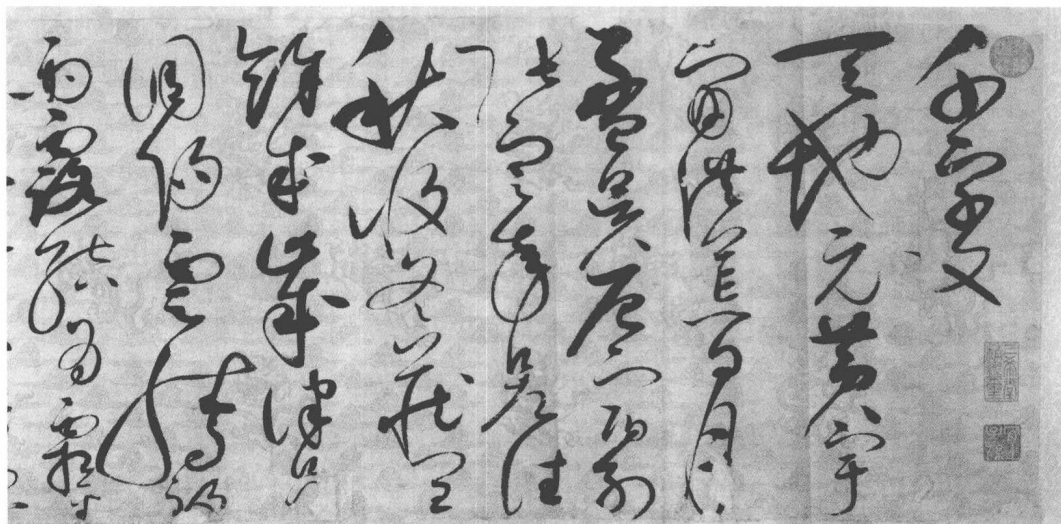 千字文
天地元黃宇
宙洪荒日月
盈昃辰宿列
張寒來暑往
秋收冬藏閏
餘成歲律呂
調陽雲騰致
雨露結為霜